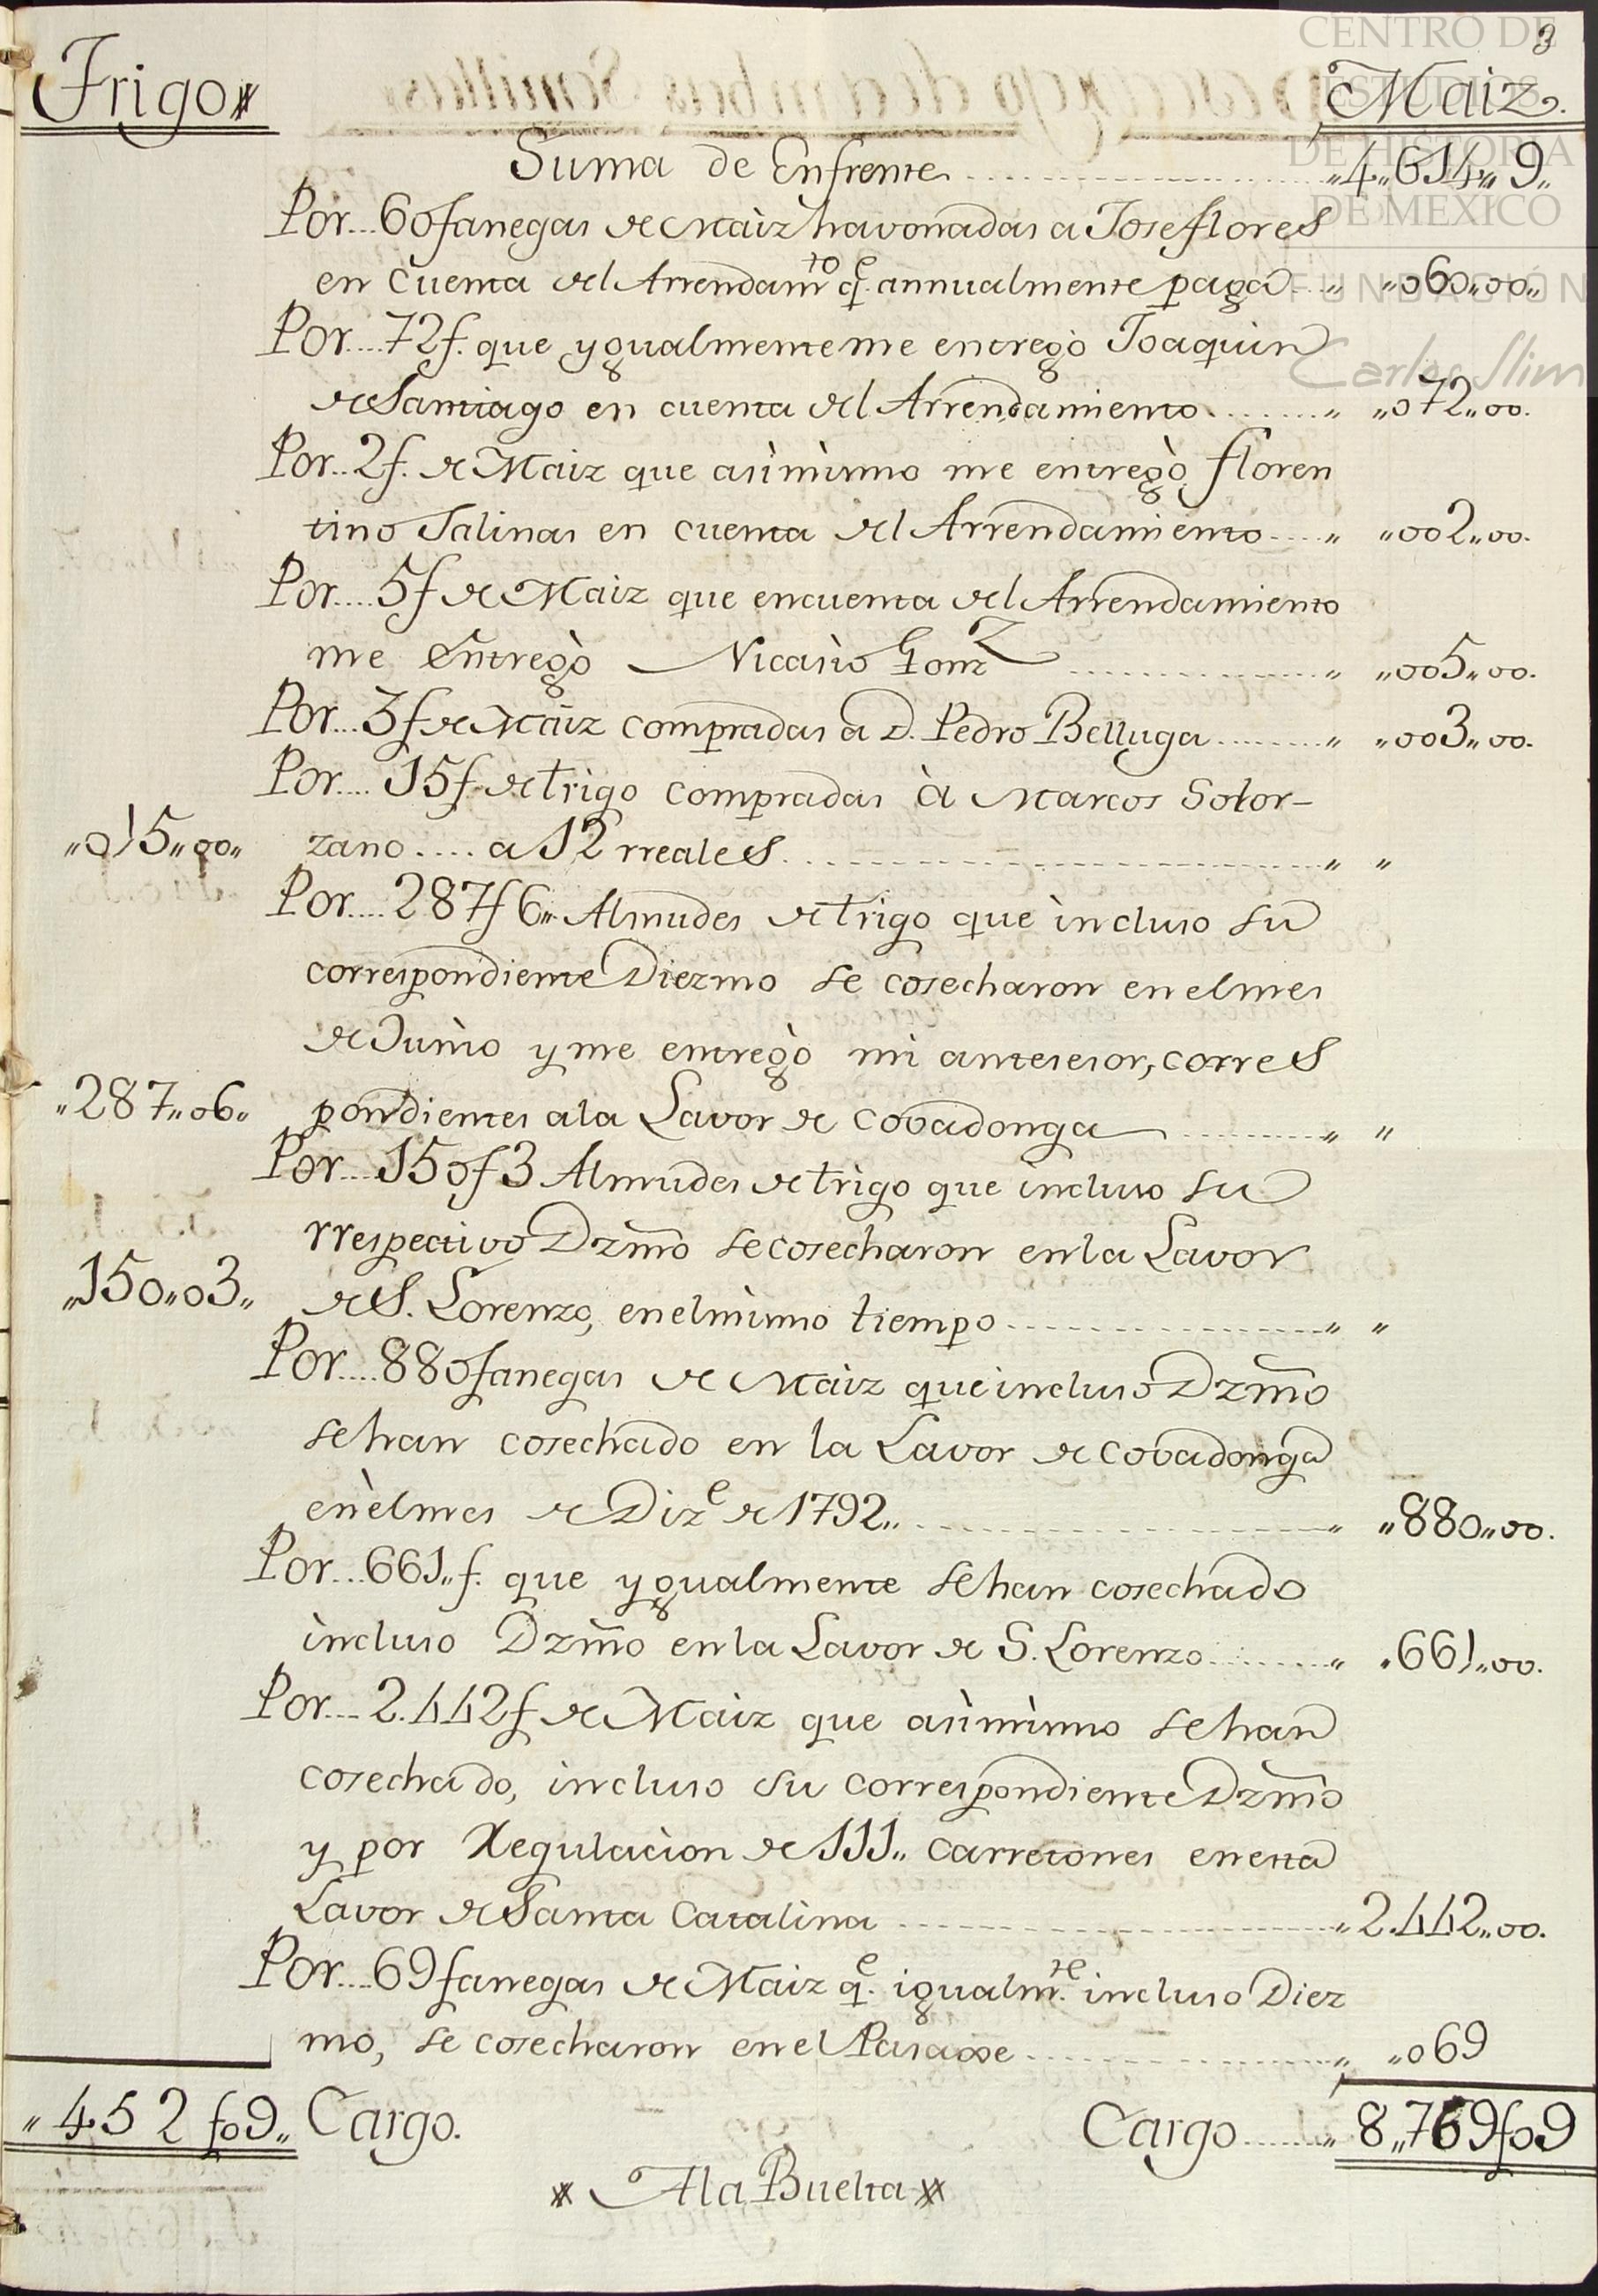 Trigo
8
Maiz.
CENTRO DE
ESTUDIOS
DE HISTORIA
DE MEXICO
FUNDACIÓN
Carlos Slim
Suma de Enfrente ........ „4„614„9„
Por...60 fanegas de Maiz havonadas a Jose flores
en Cuenta del Arrendamto qe. annualmente paga.. „ „060„00„
Por....72f. que ygualmente me entregò Joaquin
de Santiago en cuenta del Arrendamiento........ „ „072„00.
Por..2f. de Maiz que asimismo me entregò floren
tino Salinas en cuenta del Arrendamiento.... „ „002„00.
Por....5f de Maiz que encuenta del Arrendamiento
me Entregò Nicasio Gonz ........ „ „005„00.
Por...3f de Maiz compradas a D. Pedro Belluga........ „ „003„00.
Por.... 15f. de trigo compradas à Marcos Solor-
„015„00„ zano.... a 12 rreales........ „ „
Por....287f 6„ Almudes de trigo que incluso su
correspondiente Diezmo se cosecharon en el mes
de Junio y me entregò mi antesesor, corres
„287„06„ pondientes ala Lavor de Covadonga ........ „ „
Por....150f 3 Almudes de trigo que incluso su
rrespectivo Dzmo se cosecharon en la Lavor
„150„03„ de S. Lorenzo, en el mismo tiempo........ „ „
Por....880 fanegas de Maiz que incluso Dzmo
se han cosechado en la Lavor de Covadonga
en èl mes de Dize de 1792„........ „ „880„00.
Por...661„ f. que ygualmente se han cosechado
incluso Dzmo en la Lavor de S. Lorenzo........ „ „661„00.
Por....2.442f de Maiz que asimismo se han
cosechado, incluso su correspondiente Dzmo
y por Regulacion de 111„ carretones en esta
Lavor de Santa Catalina ........ „2.442„00.
Por....69 fanegas de Maiz qe. igualmte. incluso Diez
mo, se cosecharon en el Pasaxe........ „ „069
„452 fo9„ Cargo. Cargo........„ 8„769fo9
A la Buelta